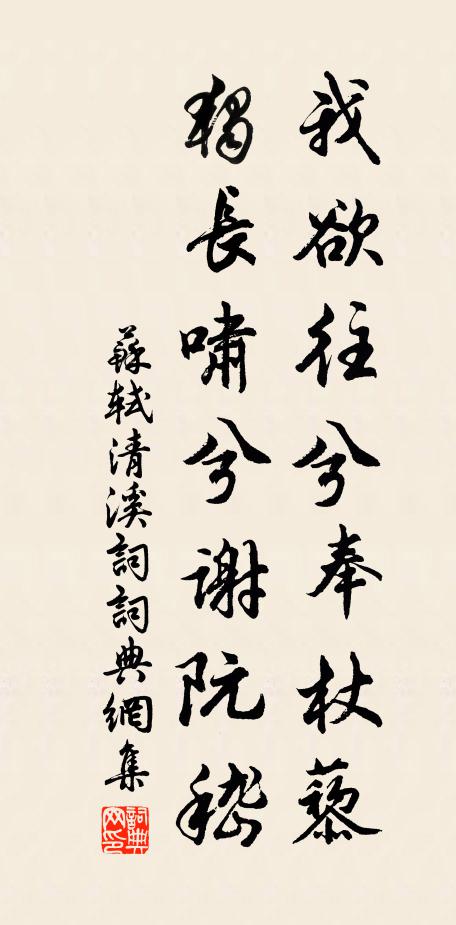 我欲往兮奉杖藜
獨長嘯兮謝阮嵇
蘇軾清溪詞詞典網集
詞典網印